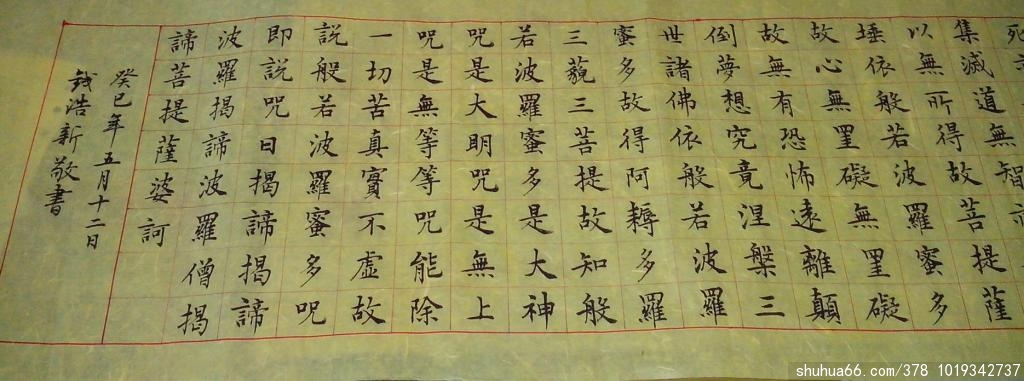 死
集滅道無智亦
以無所得故菩提薩
埵依般若波羅蜜多
故心無罣礙無罣礙
故無有恐怖遠離顛
倒夢想究竟涅槃三
世諸佛依般若波羅
蜜多故得阿耨多羅
三藐三菩提故知般
若波羅蜜多是大神
咒是大明咒是無上
咒是無等等咒能除
一切苦真實不虛故
説般若波羅蜜多咒
即説咒曰揭諦揭諦
波羅揭諦波羅僧揭
諦菩提薩婆訶
癸巳年五月十二日
錢浩新敬書
shuhua66.com/378 1019342737